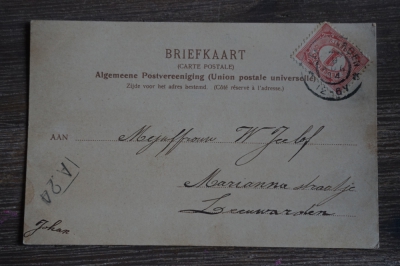 BRIEFKAART
(CARTE POSTALE)
Algemeene Postvereeniging (Union postale universelle)
Zijde voor het adres bestemd. (Côté réservé à l'adresse.)
AAN Mejuffrouw W
Mariannastraatje
Leeuwarden
1A.20
Johan